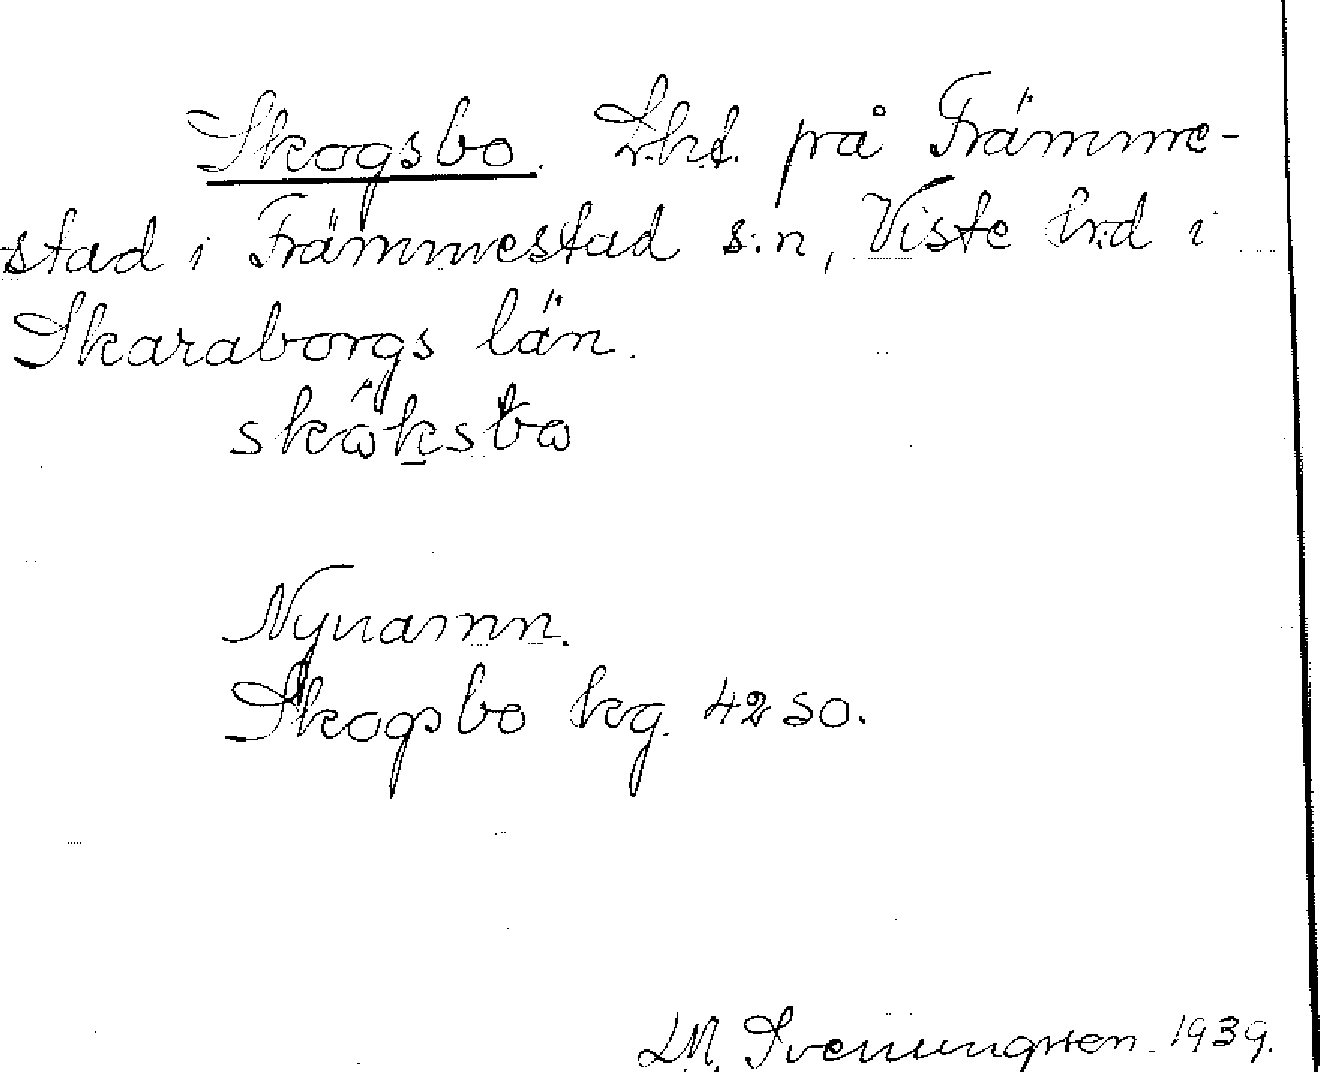 Skogsbo. Lht. på Främme-
stad i Främmestad s:n, Viste hd i
Skaraborgs län.
Nynamn.
Skogsbo kg. 4250.
L.M. Svenungsson 1939.